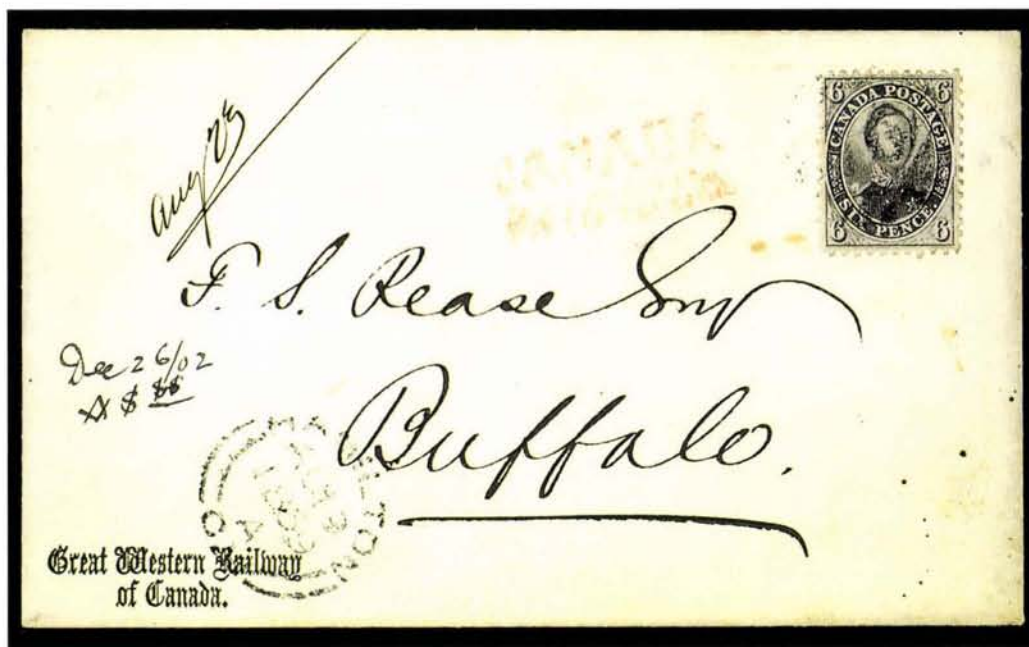 Aug 23
6 CANADA POSTAGE 6
6 SIX PENCE. 6
CANADA
F. S. Rease Esq
Dec 26/02
Buffalo.
Great Western Railway
of Canada.